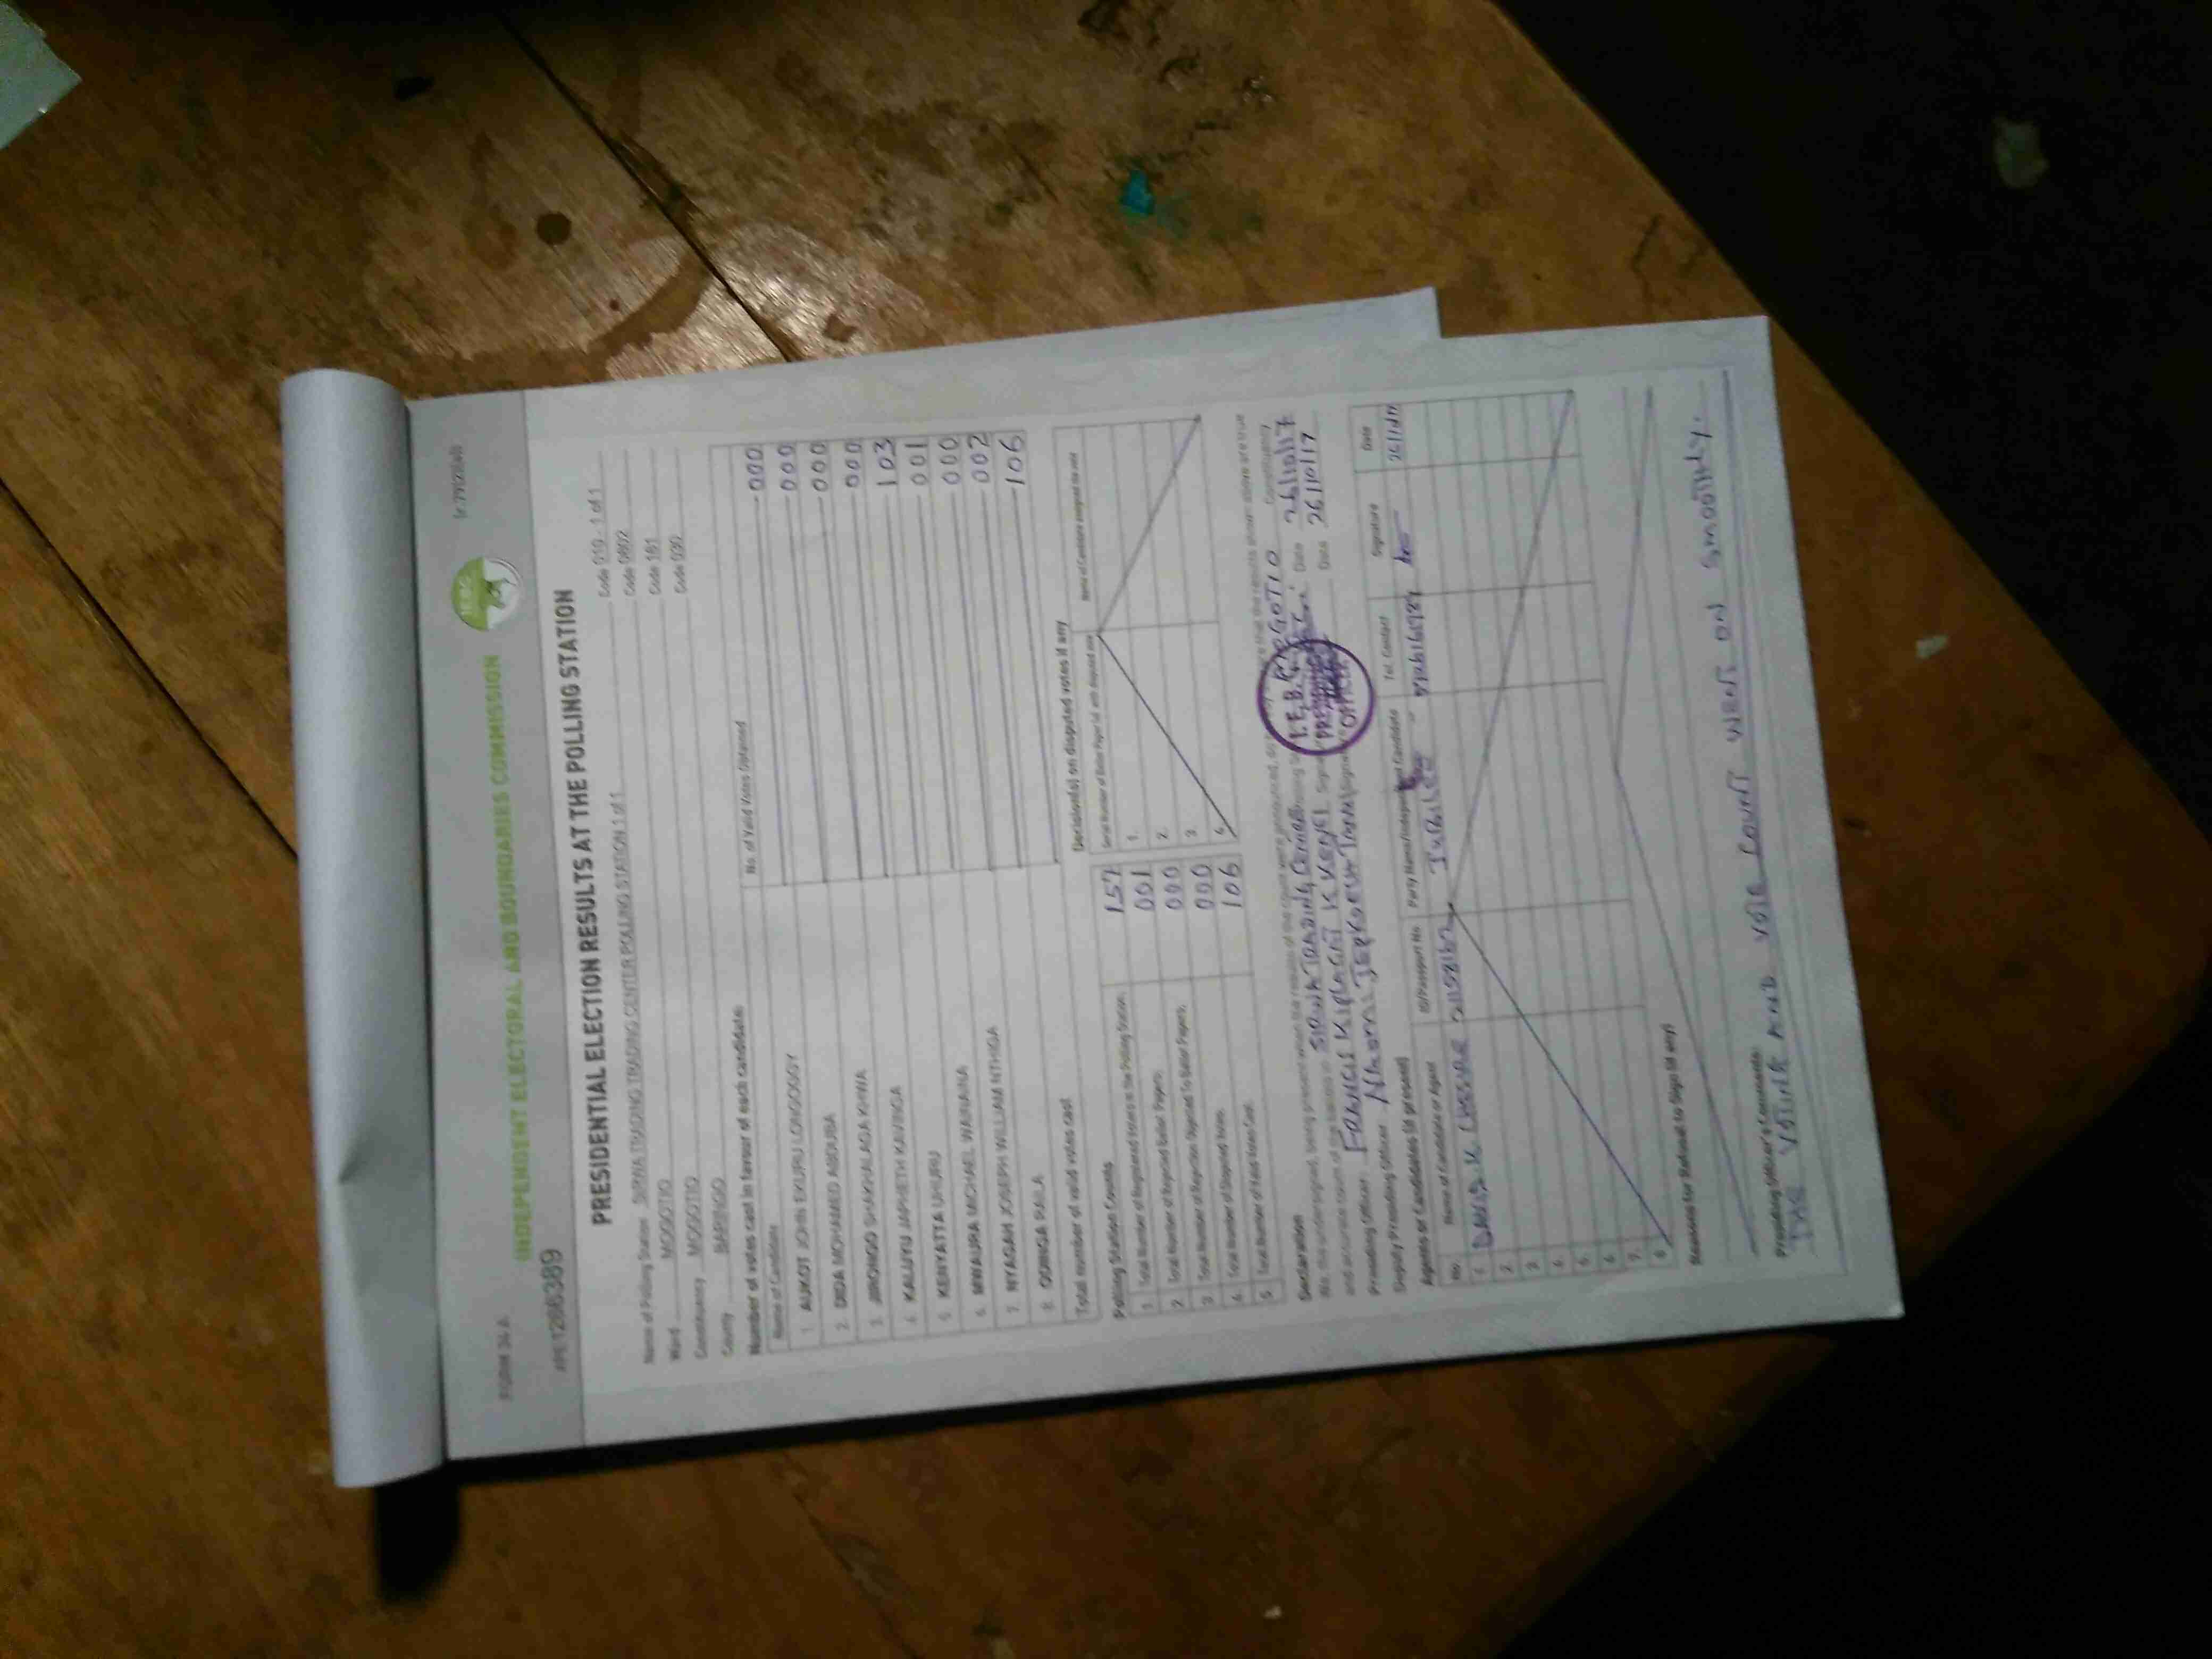 FORM 34A
INDEPENDENT ELECTORAL AND BOUNDARIES COMMISSION
IEBC
PRESIDENTIAL ELECTION RESULTS AT THE POLLING STATION
Name of Polling Station SIRWA TRADING TRADING CENTER POLLING STATION 1 of 1 Code 010 - 1 of 1
Ward MOGOTIO Code 0802
Constituency MOGOTIO Code 161
County BARINGO Code 030
Number of votes cast in favour of each candidate:
Name of Candidate No. of Valid Votes Obtained
1. AUKOT JOHN EKURU LONGOGGY 000
2. DIDA MOHAMED ABDUBA 000
3. JIRONGO SHAKHALAGA KHWA 000
4. KALUYU JAPHETH KAVINGA 000
5. KENYATTA UHURU 103
6. MWAURA MICHAEL WAINAINA 001
7. NYAGAH JOSEPH WILLIAM NTHIGA 000
8. ODINGA RAILA 002
Total number of valid votes cast 106
Polling Station Counts
1. Total Number of Registered Voters in the Polling Station 157
2. Total Number of Rejected Ballot Papers 001
3. Total Number of Rejection Objected To Ballot Papers 000
4. Total Number of Disputed Votes 000
5. Total Number of Valid Votes Cast 106
Decision(s) on disputed votes if any
Serial Number of Ballot Paper(s) with disputed vote Name of Candidate assigned the vote
1.
2.
3.
4.
Declaration
We, the undersigned, being present when the results of the count were announced, do hereby declare that the results shown above are true
and accurate count of the ballots in SIRWA TRADING CENTRE Polling Station MOGOTIO Constituency
Presiding Officer FRANCIS KIPLAGAT K Date 26/10/17
Deputy Presiding Officer Date 26/10/17
I.E.B.C
PRESIDING
OFFICER
Agents or Candidates (if present)
No. Name of Candidate or Agent ID/Passport No Party Name/Independent Candidate Tel. Contact Signature Date
1. DAVID K Jubilee
2.
3.
4.
5.
6.
7.
8.
Reasons for Refusal to Sign (if any)
Presiding Officer's Comments:
THE VOTING AND VOTE COUNT WENT ON SMOOTHLY.